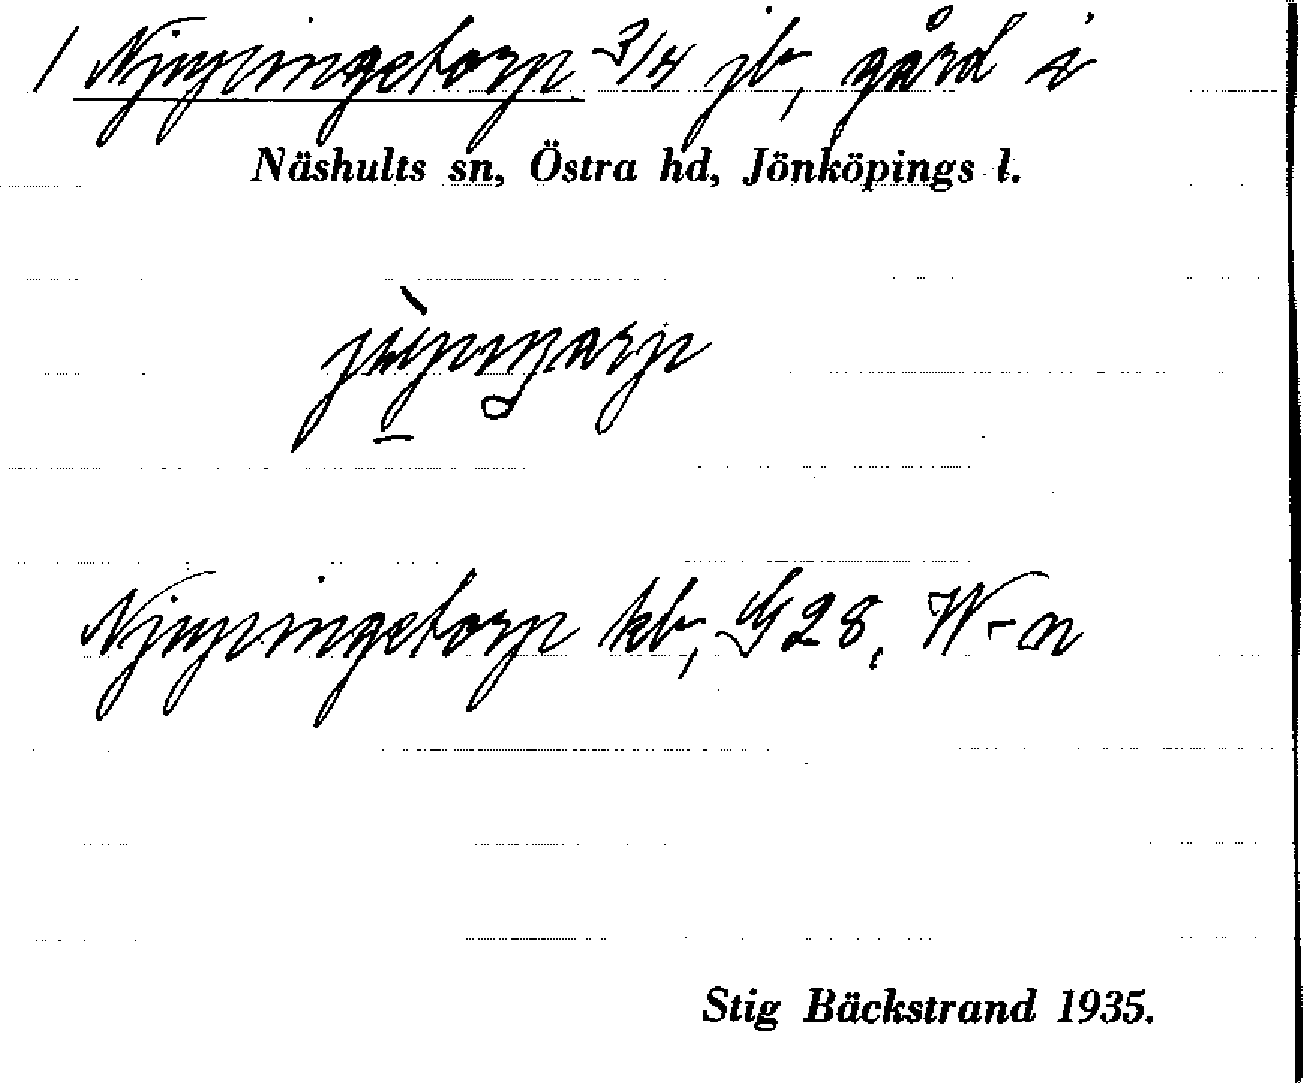 1 Njupingetorp 3/4 jb, gård i
Näshults sn, Östra hd, Jönköpings l.
Njupingetorp kb, G 28, W-n
Stig Bäckstrand 1935.